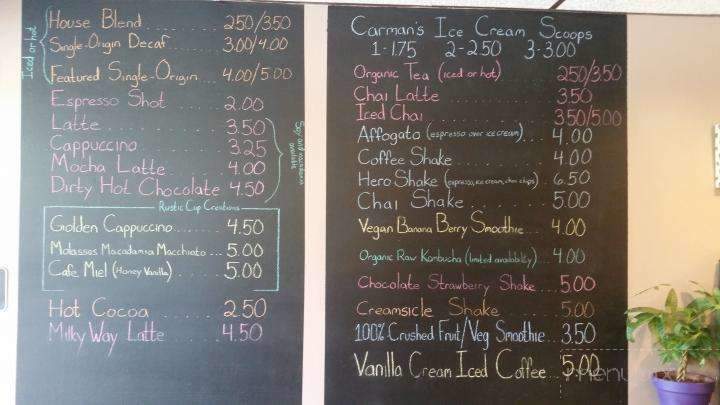 Iced or hot
House Blend 2.50/3.50
Single-Origin Decaf 3.00/4.00
Featured Single-Origin 4.00/5.00
Espresso Shot 2.00
Latte 3.50
Cappuccino 3.25
Mocha Latte 4.00
Dirty Hot Chocolate 4.50
Soy and macadamia
available
Rustic Cup Creations
Golden Cappuccino 4.50
Molasses Macadamia Macchiato 5.00
Cafe Miel (Honey Vanilla) 5.00
Hot Cocoa 2.50
Milky Way Latte 4.50
Carman's Ice Cream Scoops
1-1.75 2-2.50 3-3.00
Organic Tea (iced or hot) 2.50/3.50
Chai Latte 3.50
Iced Chai 3.50/5.00
Affogato (espresso over ice cream) 4.00
Coffee Shake 4.00
Hero Shake (espresso, ice cream, choc chips) 6.50
Chai Shake 5.00
Vegan Banana Berry Smoothie 4.00
Organic Raw Kombucha (limited availability) 4.00
Chocolate Strawberry Shake 5.00
Creamsicle Shake 5.00
100% Crushed Fruit/Veg Smoothie 3.50
Vanilla Cream Iced Coffee 5.00